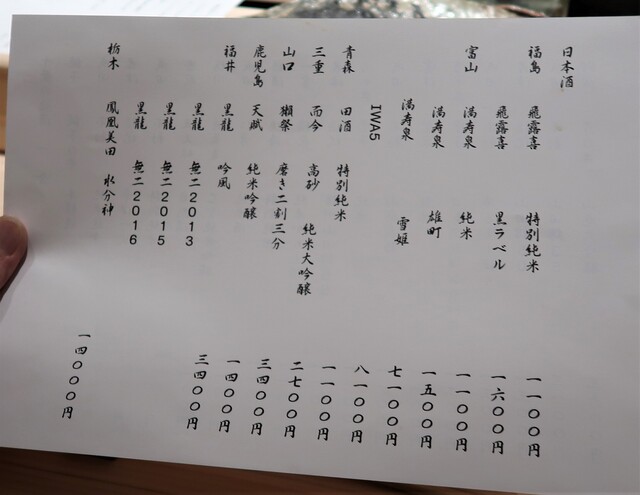 日本酒
福島 飛露喜 特別純米 一一〇〇円
飛露喜 黒ラベル 一六〇〇円
富山 満寿泉 純米 一一〇〇円
満寿泉 雄町 一五〇〇円
満寿泉 雪姫 七一〇〇円
IWA5 八一〇〇円
青森 田酒 特別純米 一一〇〇円
三重 而今 高砂 純米大吟醸 二七〇〇円
山口 獺祭 磨き二割三分 三四〇〇円
鹿児島 天賦 純米吟醸 一四〇〇円
福井 黒龍 吟風 三四〇〇円
黒龍 無二2013
黒龍 無二2015
黒龍 無二2016
栃木 鳳凰美田 水分神 一四〇〇〇円